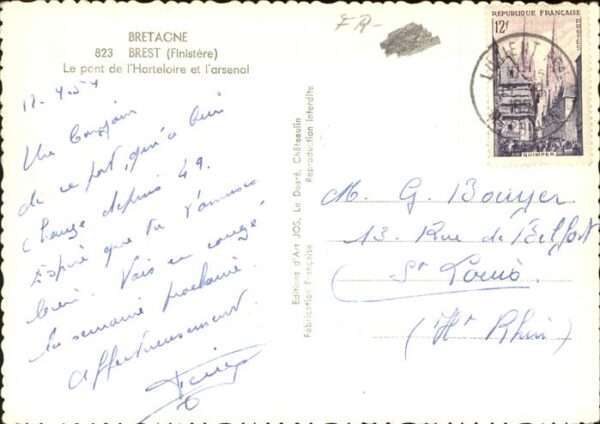 BRETAGNE
823 BREST (Finistère)
Le pont de l'Harteloire et l'arsenal
FR-
REPUBLIQUE FRANÇAISE
12f
POSTES
LORIENT
QUIMPER
Editions d'Art JOS, Le Doaré, Châteaulin
Fabrication Française Reproduction Interdite
Un bonjour
de ce port, qu'a bien
change depuis 49.
Espère que tu t'amuses
bien. Vais en congé
la semaine prochaine.
Affectueusement.
M. G. Bouyer
13 Rue de Belfort
St Louis
(Ht Rhin)